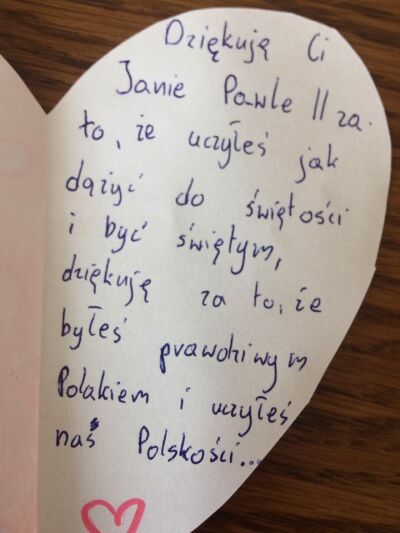 Dziękują Ci
Janie Pawle II za
to, że uczyłeś jak
dążyć do świętości
i być świętym,
dziękują za to, że
byłeś prawdziwym
Polakiem i uczyłeś
naś Polskości...